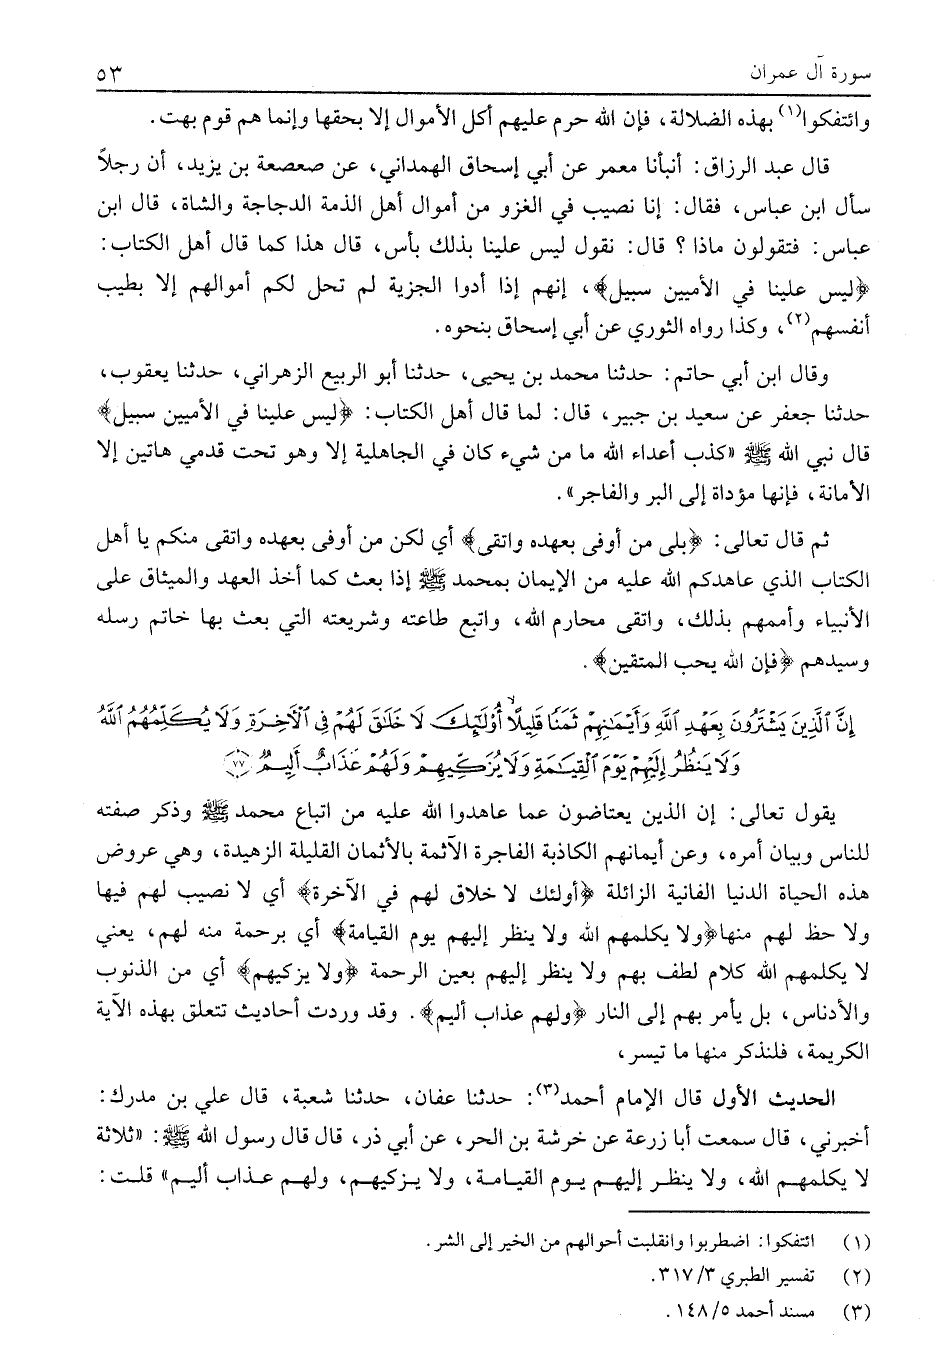 سورة آل عمران ٥٣
وائتفكوا(١) بهذه الضلالة، فإن الله حرم عليهم أكل الأموال إلا بحقها وإنما هم قوم بهت.
قال عبد الرزاق: أنبأنا معمر عن أبي إسحاق الهمداني، عن صعصعة بن يزيد، أن رجلاً
سأل ابن عباس، فقال: إنا نصيب في الغزو من أموال أهل الذمة الدجاجة والشاة، قال ابن
عباس: فتقولون ماذا؟ قال: نقول ليس علينا بذلك بأس، قال هذا كما قال أهل الكتاب:
﴿ليس علينا في الأميين سبيل﴾، إنهم إذا أدوا الجزية لم تحل لكم أموالهم إلا بطيب
أنفسهم(٢)، وكذا رواه الثوري عن أبي إسحاق بنحوه.
وقال ابن أبي حاتم: حدثنا محمد بن يحيى، حدثنا أبو الربيع الزهراني، حدثنا يعقوب،
حدثنا جعفر عن سعيد بن جبير، قال: لما قال أهل الكتاب: ﴿ليس علينا في الأميين سبيل﴾
قال نبي الله ﷺ «كذب أعداء الله ما من شيء كان في الجاهلية إلا وهو تحت قدمي هاتين إلا
الأمانة، فإنها مؤداة إلى البر والفاجر».
ثم قال تعالى: ﴿بلى من أوفى بعهده واتقى﴾ أي لكن من أوفى بعهده واتقى منكم يا أهل
الكتاب الذي عاهدكم الله عليه من الإيمان بمحمد ﷺ إذا بعث كما أخذ العهد والميثاق على
الأنبياء وأممهم بذلك، واتقى محارم الله، واتبع طاعته وشريعته التي بعث بها خاتم رسله
وسيدهم ﴿فإن الله يحب المتقين﴾.
إِنَّ ٱلَّذِينَ يَشْتَرُونَ بِعَهْدِ ٱللَّهِ وَأَيْمَٰنِهِمْ ثَمَنًا قَلِيلًا أُوْلَٰٓئِكَ لَا خَلَٰقَ لَهُمْ فِى ٱلْأَخِرَةِ وَلَا يُكَلِّمُهُمُ ٱللَّهُ
وَلَا يَنظُرُ إِلَيْهِمْ يَوْمَ ٱلْقِيَٰمَةِ وَلَا يُزَكِّيهِمْ وَلَهُمْ عَذَابٌ أَلِيمٌ ﴿٧٧﴾
يقول تعالى: إن الذين يعتاضون عما عاهدوا الله عليه من اتباع محمد ﷺ وذكر صفته
للناس وبيان أمره، وعن أيمانهم الكاذبة الفاجرة الآثمة بالأثمان القليلة الزهيدة، وهي عروض
هذه الحياة الدنيا الفانية الزائلة ﴿أولئك لا خلاق لهم في الآخرة﴾ أي لا نصيب لهم فيها
ولا حظ لهم منها﴿ولا يكلمهم الله ولا ينظر إليهم يوم القيامة﴾ أي برحمة منه لهم، يعني
لا يكلمهم الله كلام لطف بهم ولا ينظر إليهم بعين الرحمة ﴿ولا يزكيهم﴾ أي من الذنوب
والأدناس، بل يأمر بهم إلى النار ﴿ولهم عذاب أليم﴾. وقد وردت أحاديث تتعلق بهذه الآية
الكريمة، فلنذكر منها ما تيسر،
الحديث الأول قال الإمام أحمد(٣): حدثنا عفان، حدثنا شعبة، قال علي بن مدرك:
أخبرني، قال سمعت أبا زرعة عن خرشة بن الحر، عن أبي ذر، قال قال رسول الله ﷺ: «ثلاثة
لا يكلمهم الله، ولا ينظر إليهم يوم القيامة، ولا يزكيهم، ولهم عذاب أليم» قلت:
(١) ائتفكوا: اضطربوا وانقلبت أحوالهم من الخير إلى الشر.
(٢) تفسير الطبري ٣/ ٣١٧.
(٣) مسند أحمد ٥/ ١٤٨.